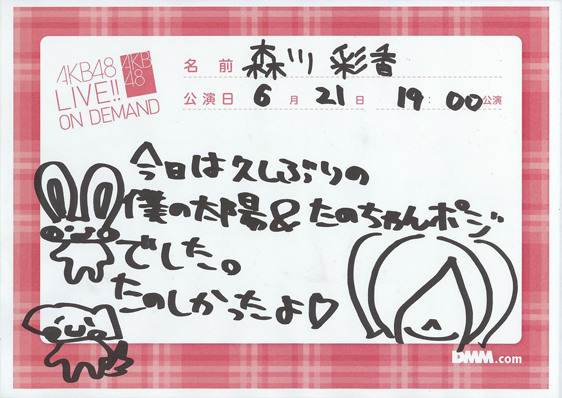 AKB48
LIVE!!
ON DEMAND
AKB
48
名前 森川 彩香
公演日 6月21日 19:00公演
今日は久しぶりの
僕の太陽&たのちゃんポジ
でした。
たのしかったよ♡
DMM.com